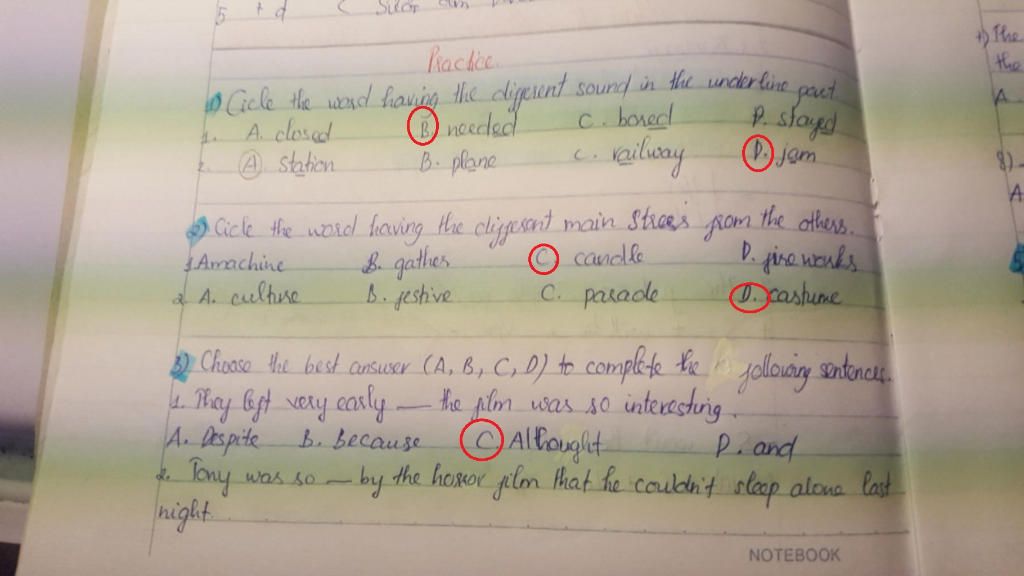 5 + d
Practice.
1) Cicle the word having the different sound in the underline part
1. A. closed B. needed C. bored D. stayed
2. A. station B. plane C. railway D. jam
2) Cicle the word having the different main stress from the others.
1. A machine B. gather C. candle D. fireworks
2. A. culture B. festive C. parade D. costume
3) Choose the best answer (A, B, C, D) to complete the following sentences.
1. They left very early — the film was so interesting.
A. Despite B. Because C. Althought D. and
2. Tony was so — by the horror film that he couldn't sleep alone last
night.
NOTEBOOK
The
the
A.
8)
A
5